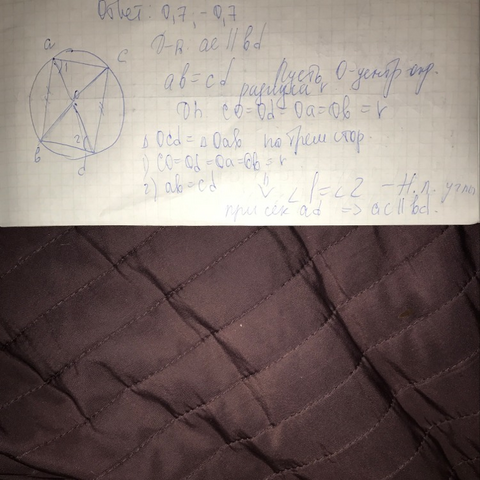 Ответ: 0,7; -0,7
Д-ть ac || bd
a c
ab = cd Пусть O-центр окр.
радиуса r
Дп. CO=Od=Oa=Ob=r
△Ocd = △Oab по трем стор.
1) CO=Od=Oa=Ob=r
2) ab=cd
∠1=∠2 - н.л. углы
при сек ad => ac || bd.
1
2
b d